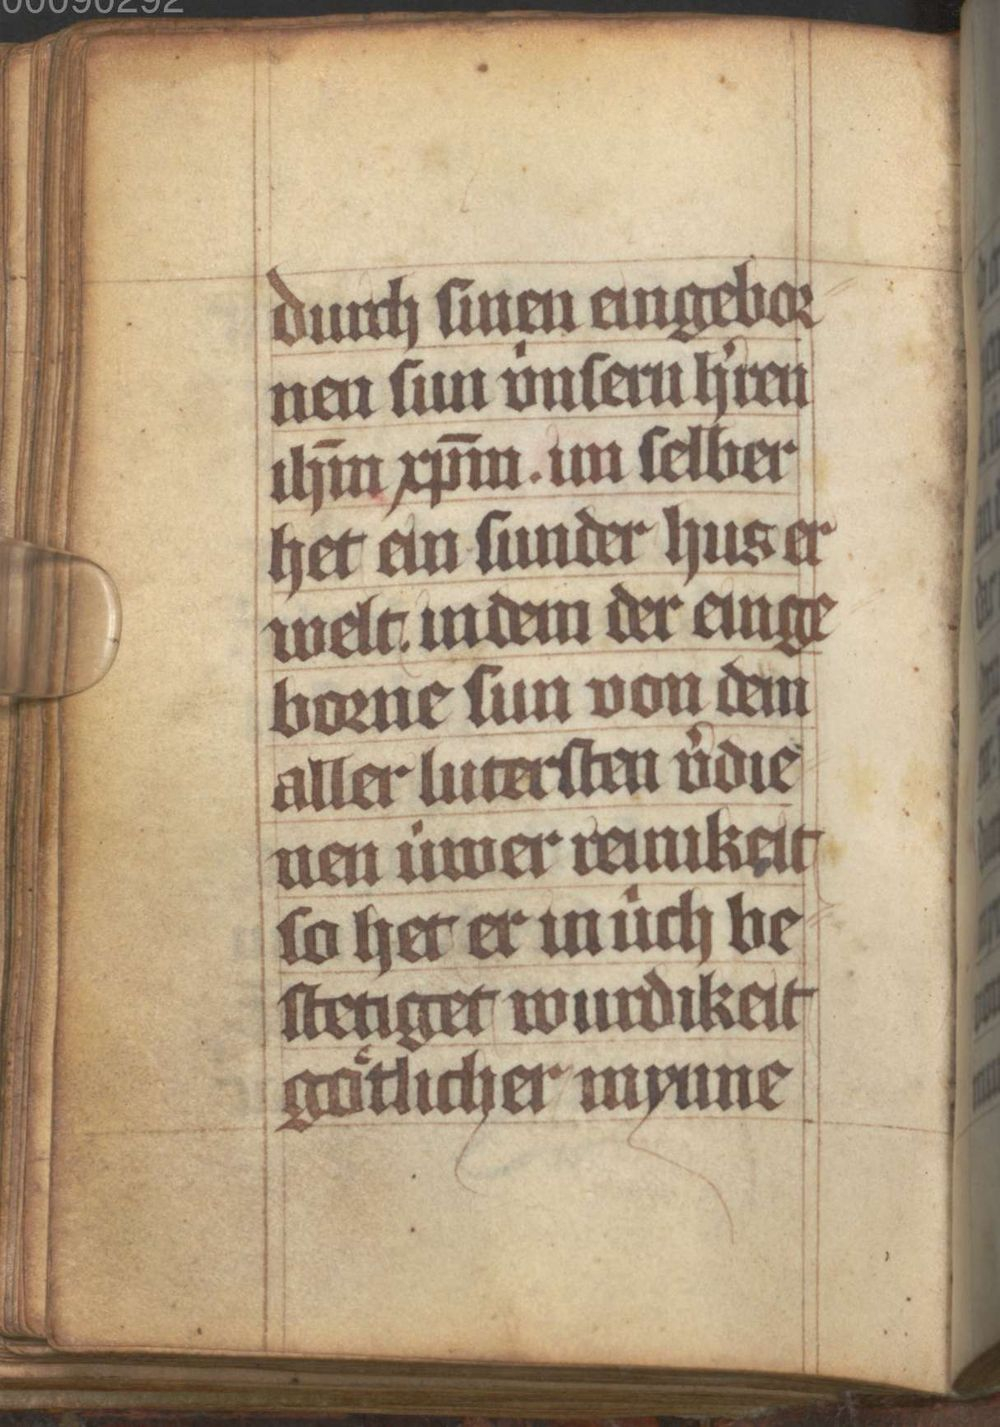 00090292
durch sinen eingebor
nen sun v̇nsern hr̓en
ihm̄ xp̄m. im selber
het ein sunder hus er
welt. in dem der einge
borne sun von dem
aller lutersten v̓die
nen u̇wer reinikeit
so het er in u̇ch be
stetiget wurdikeit
goͤtlicher mynne